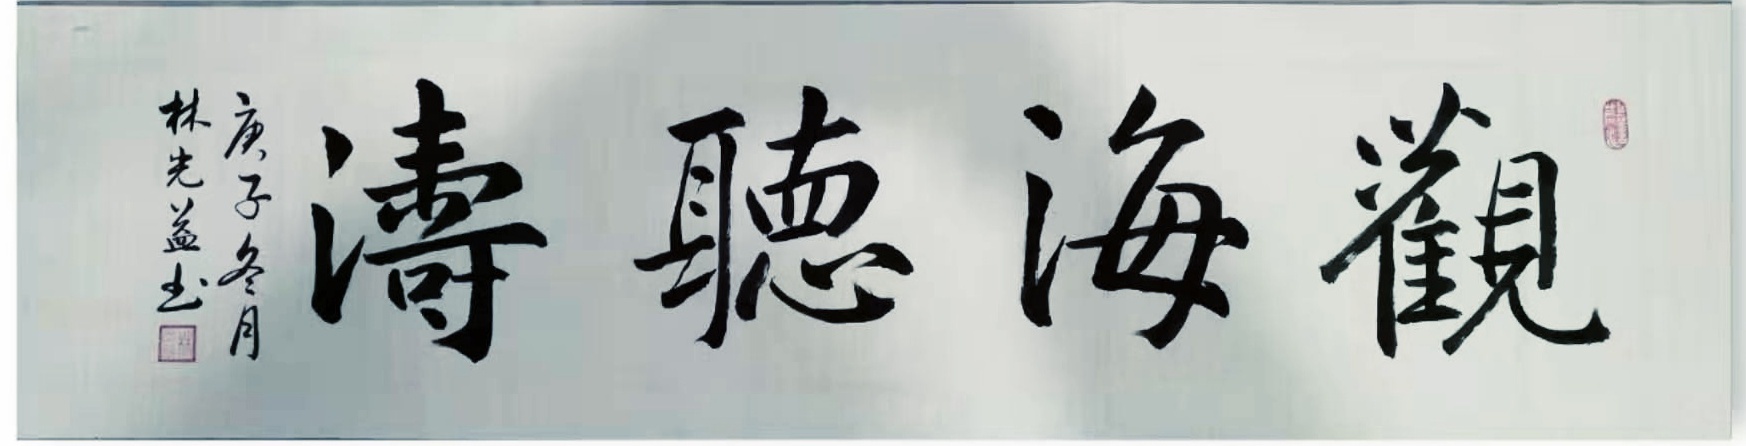 觀海聽濤
庚子冬月
林先益书